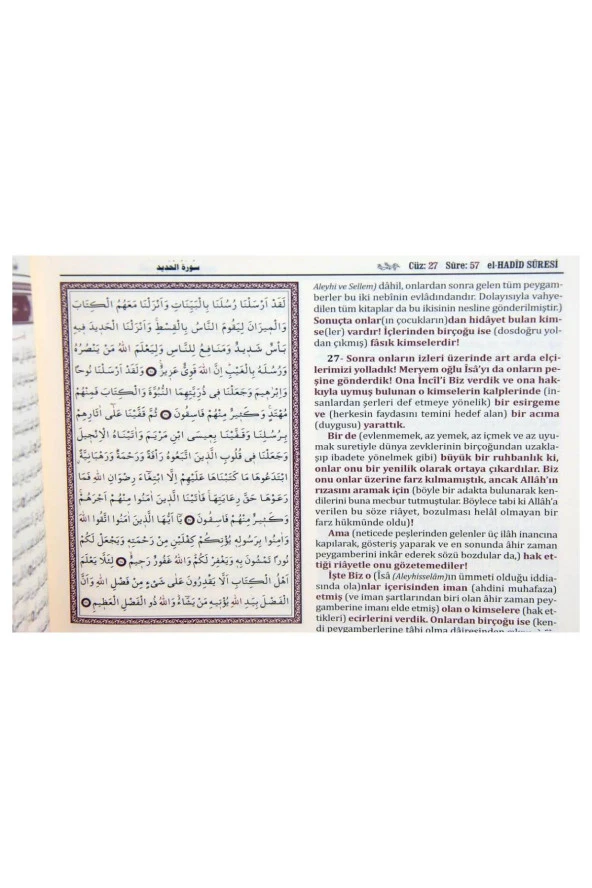 سورة الحديد
Cüz: 27 Sûre: 57 el-HADÎD SÛRESİ
لَقَدْ اَرْسَلْنَا رُسُلَنَا بِالْبَيِّنَاتِ وَاَنْزَلْنَا مَعَهُمُ الْكِتَابَ
وَالْمِيزَانَ لِيَقُومَ النَّاسُ بِالْقِسْطِۚ وَاَنْزَلْنَا الْحَدِيدَ فِيهِ
بَأْسٌ شَدِيدٌ وَمَنَافِعُ لِلنَّاسِ وَلِيَعْلَمَ اللّٰهُ مَنْ يَنْصُرُهُ
وَرُسُلَهُ بِالْغَيْبِۜ اِنَّ اللّٰهَ قَوِيٌّ عَزِيزٌ۟ وَلَقَدْ اَرْسَلْنَا نُوحًا
وَاِبْرٰهِيمَ وَجَعَلْنَا فِي ذُرِّيَّتِهِمَا النُّبُوَّةَ وَالْكِتَابَ فَمِنْهُمْ
مُهْتَدٍۚ وَكَثِيرٌ مِنْهُمْ فَاسِقُونَ ثُمَّ قَفَّيْنَا عَلٰٓى اٰثَارِهِمْ
بِرُسُلِنَا وَقَفَّيْنَا بِعِيسَى ابْنِ مَرْيَمَ وَاٰتَيْنَاهُ الْاِنْجِيلَ
وَجَعَلْنَا فِي قُلُوبِ الَّذِينَ اتَّبَعُوهُ رَأْفَةً وَرَحْمَةًۜ وَرَهْبَانِيَّةً
ابْتَدَعُوهَا مَا كَتَبْنَاهَا عَلَيْهِمْ اِلَّا ابْتِغَٓاءَ رِضْوَانِ اللّٰهِ فَمَا
رَعَوْهَا حَقَّ رِعَايَتِهَاۚ فَاٰتَيْنَا الَّذِينَ اٰمَنُوا مِنْهُمْ اَجْرَهُمْۚ
وَكَثِيرٌ مِنْهُمْ فَاسِقُونَ يَٓا اَيُّهَا الَّذِينَ اٰمَنُوا اتَّقُوا اللّٰهَ
وَاٰمِنُوا بِرَسُولِهِ يُؤْتِكُمْ كِفْلَيْنِ مِنْ رَحْمَتِهِ وَيَجْعَلْ لَكُمْ
نُورًا تَمْشُونَ بِهِ وَيَغْفِرْ لَكُمْۜ وَاللّٰهُ غَفُورٌ رَحِيمٌۙ لِئَلَّا يَعْلَمَ
اَهْلُ الْكِتَابِ اَلَّا يَقْدِرُونَ عَلٰى شَيْءٍ مِنْ فَضْلِ اللّٰهِ وَاَنَّ
الْفَضْلَ بِيَدِ اللّٰهِ يُؤْتِيهِ مَنْ يَشَٓاءُۜ وَاللّٰهُ ذُو الْفَضْلِ الْعَظِيمِ
Aleyhi ve Sellem) dâhil, onlardan sonra gelen tüm peygam-
berler bu iki nebînin evlâdındandır. Dolayısıyla vahye-
dilen tüm kitaplar da bu ikisinin nesline gönderilmiştir.)
Sonuçta onlar(ın çocukların)dan hidâyet bulan kim-
se(ler) vardır! İçlerinden birçoğu ise (dosdoğru yol-
dan çıkmış) fâsık kimselerdir!
27- Sonra onların izleri üzerinde art arda elçi-
lerimizi yolladık! Meryem oğlu Îsâ'yı da onların pe-
şine gönderdik! Ona İncîl'i Biz verdik ve ona hak-
kıyla uymuş bulunan o kimselerin kalplerinde (in-
sanlardan şerleri def etmeye yönelik) bir esirgeme
ve (herkesin faydasını temini hedef alan) bir acıma
(duygusu) yarattık.
Bir de (evlenmemek, az yemek, az içmek ve az uyu-
mak suretiyle dünya zevklerinin birçoğundan uzakla-
şıp ibadete yönelmek gibi) büyük bir ruhbanlık ki,
onlar onu bir yenilik olarak ortaya çıkardılar. Biz
onu onlar üzerine farz kılmamıştık, ancak Allâh'ın
rızasını aramak için (böyle bir adakta bulunarak ken-
dilerini buna mecbur tutmuştular. Böylece tabi ki Allâh'a
verilen bu söze riâyet, bozulması helâl olmayan bir
farz hükmünde oldu)!
Ama (neticede peşlerinden gelenler üç ilâh inancına
kapılarak, gösteriş yaparak ve en sonunda âhir zaman
peygamberini inkâr ederek sözü bozdular da,) hak et-
tiği riâyetle onu gözetemediler!
İşte Biz o (Îsâ (Aleyhisselâm)ın ümmeti olduğu iddia-
sında ola)nlar içerisinden iman (ahdini muhafaza)
etmiş (ve iman şartlarından biri olan âhir zaman pey-
gamberine imanı elde etmiş) olan o kimselere (hak et-
tikleri) ecirlerini verdik. Onlardan birçoğu ise (ken-
di peygamberlerine tâbi olma dâiresinden